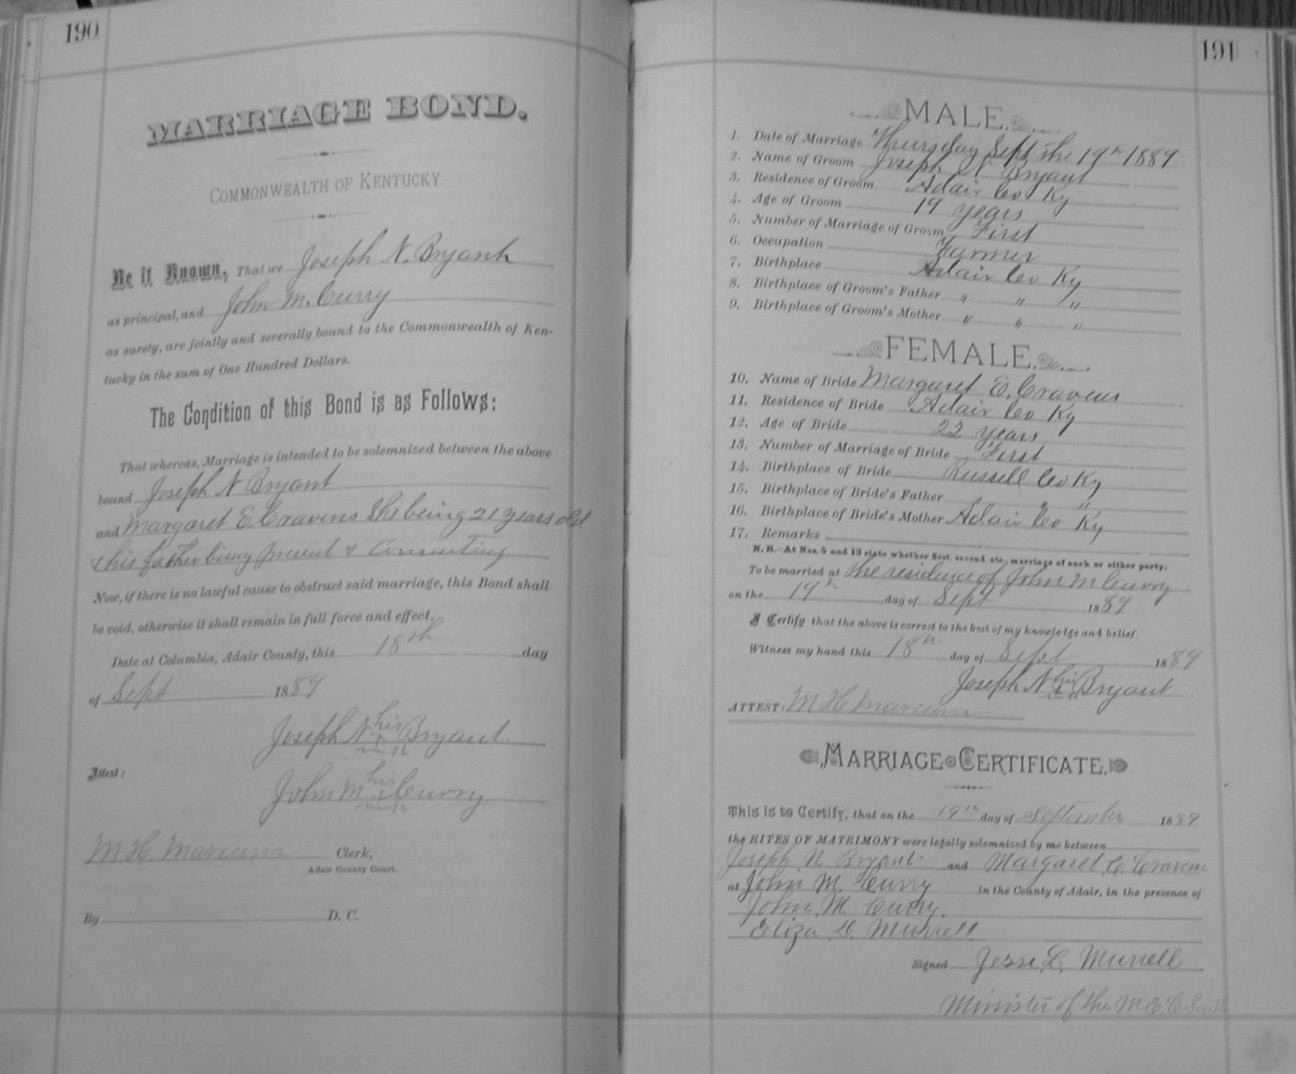 190
MARRIAGE BOND.
COMMONWEALTH OF KENTUCKY.
Be it Known, That we Joseph N. Bryant
as principal, and John M. Curry
as surety, are jointly and severally bound to the Commonwealth of Ken-
tucky in the sum of One Hundred Dollars.
The Condition of this Bond is as Follows:
That whereas, Marriage is intended to be solemnized between the above
bound Joseph N Bryant
and Margaret E. Cravens She being 21 years old
& his father being present & consenting
Now, if there is no lawful cause to obstruct said marriage, this Bond shall
be void, otherwise it shall remain in full force and effect.
Date at Columbia, Adair County, this 18th day
of Sept 1889
Joseph N his x mark Bryant
Attest:
John M his x mark Curry
M H Marcum Clerk,
Adair County Court.
By D. C.
191
MALE.
1. Date of Marriage Thursday Sept the 19th 1889
2. Name of Groom Joseph N Bryant
3. Residence of Groom Adair Co Ky
4. Age of Groom 19 years
5. Number of Marriage of Groom First
6. Occupation Farmer
7. Birthplace Adair Co Ky
8. Birthplace of Groom's Father " " "
9. Birthplace of Groom's Mother " " "
FEMALE.
10. Name of Bride Margaret E. Cravens
11. Residence of Bride Adair Co Ky
12. Age of Bride 22 years
13. Number of Marriage of Bride First
14. Birthplace of Bride Russell Co Ky
15. Birthplace of Bride's Father "
16. Birthplace of Bride's Mother Adair Co Ky
17. Remarks
N. B.—At Nos. 5 and 13 state whether first, second, etc., marriage of each or either party.
To be married at the residence of John M Curry
on the 19th day of Sept 1889
I Certify that the above is correct to the best of my knowledge and belief.
Witness my hand this 18th day of Sept 1889
Joseph N his x Bryant
ATTEST: M H Marcum
MARRIAGE CERTIFICATE.
This is to Certify, that on the 19th day of September 1889
the RITES OF MATRIMONY were legally solemnized by me between
Joseph N Bryant and Margaret E. Cravens
at John M. Curry in the County of Adair, in the presence of
John M Curry.
Eliza D. Murrell
Signed Jesse L. Murrell
Minister of the M. E. C. South